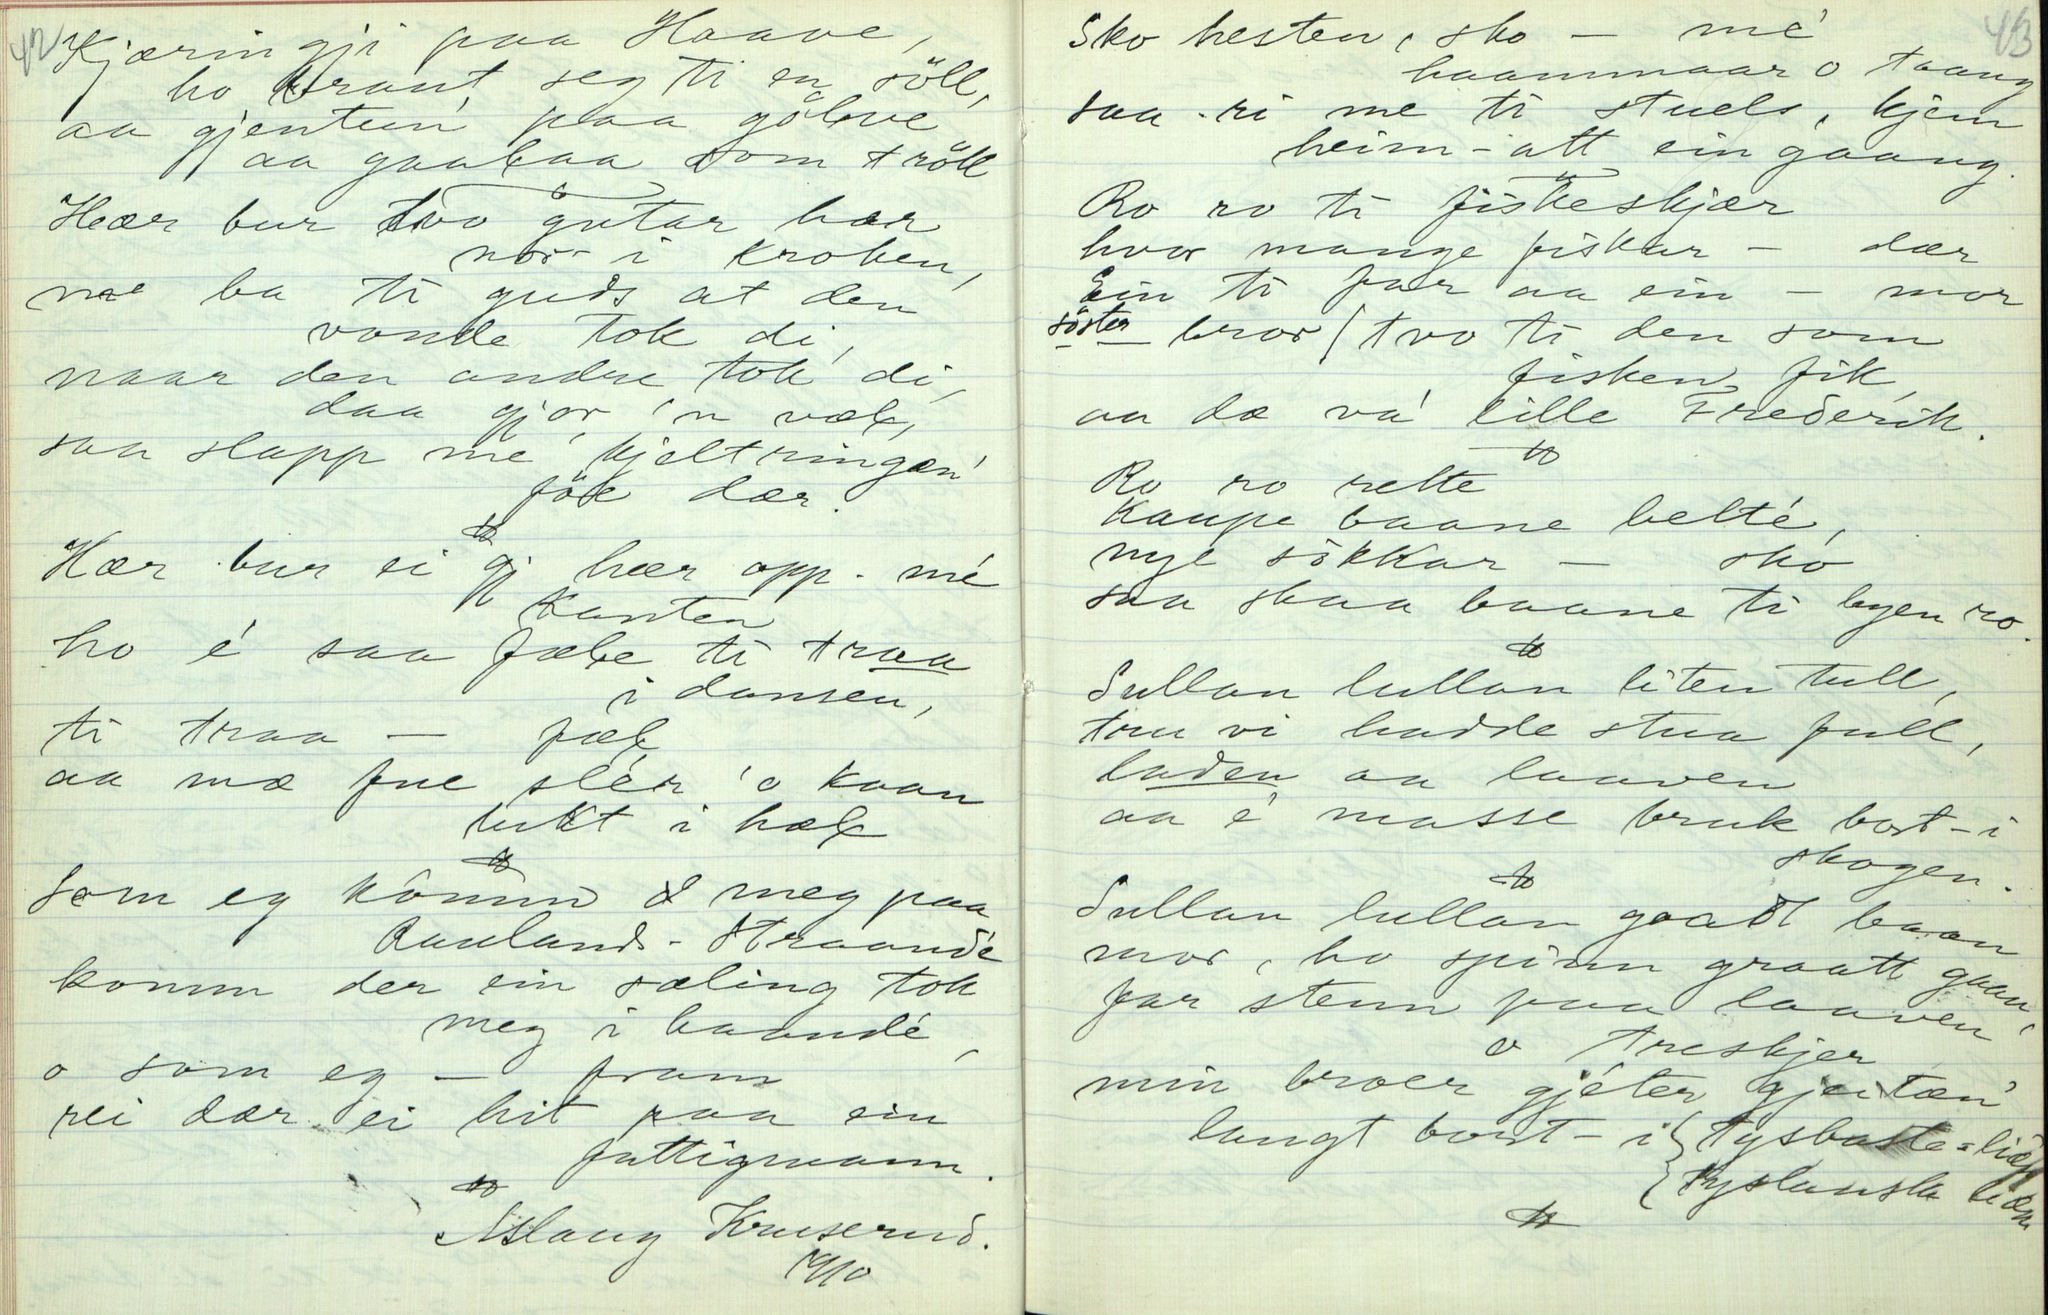 42
Kjæringji paa Haave,
ho braut seg ti en söll,
aa gjentun' paa gölve
aa gaalaa som tröll
Heær bur tvo gutar hær
nor- i kroken,
me ba ti guds at den
vonde tok di,
naar den andre tok di,
daa gjor 'n væl,
saa slapp me' kjeltringæn'
föl dær.
Hær bur ei gj hær opp- mé
Kanten
ho é saa fæle ti traa
i dansen,
ti traa — fæl
aa mæ fue slér 'o kaan
bukt i hæl
Som eg kômm d meg paa
Raulands-Straandé
komm der ein sæling tok
meg i haandé,
o som eg — fram
rei dær ei hit paa ein
fattigmann.
Aslaug Kruserud.
1910
43
Sko hesten, sko — mé
haammaar o taang
saa ri me ti stuels, kjem
heim-att ein gaang.
Ro ro ti fiskeskjær
hvor mange fiskar — dær
Ein ti far aa ein — mor
söster
— — bror / tvo ti den som
fisken fik,
aa dæ va' lille Frederik.
Ro ro relte
Kaupe baane belté,
nye sökkar — sko
saa skaa baane ti byen ro.
Sullan lullan liten tull,
tru vi hadde stua full,
laden aa laaven
aa é masse bruk bort-i
skogen.
Sullan lullan goadt baan
mor, ho spinn graatt gaan,
far stenn paa laaven
o treskjer
min broer gjéter gjeitæn'
langt bort-i { Tysbaste = liæn
{ Tyslanske liæn